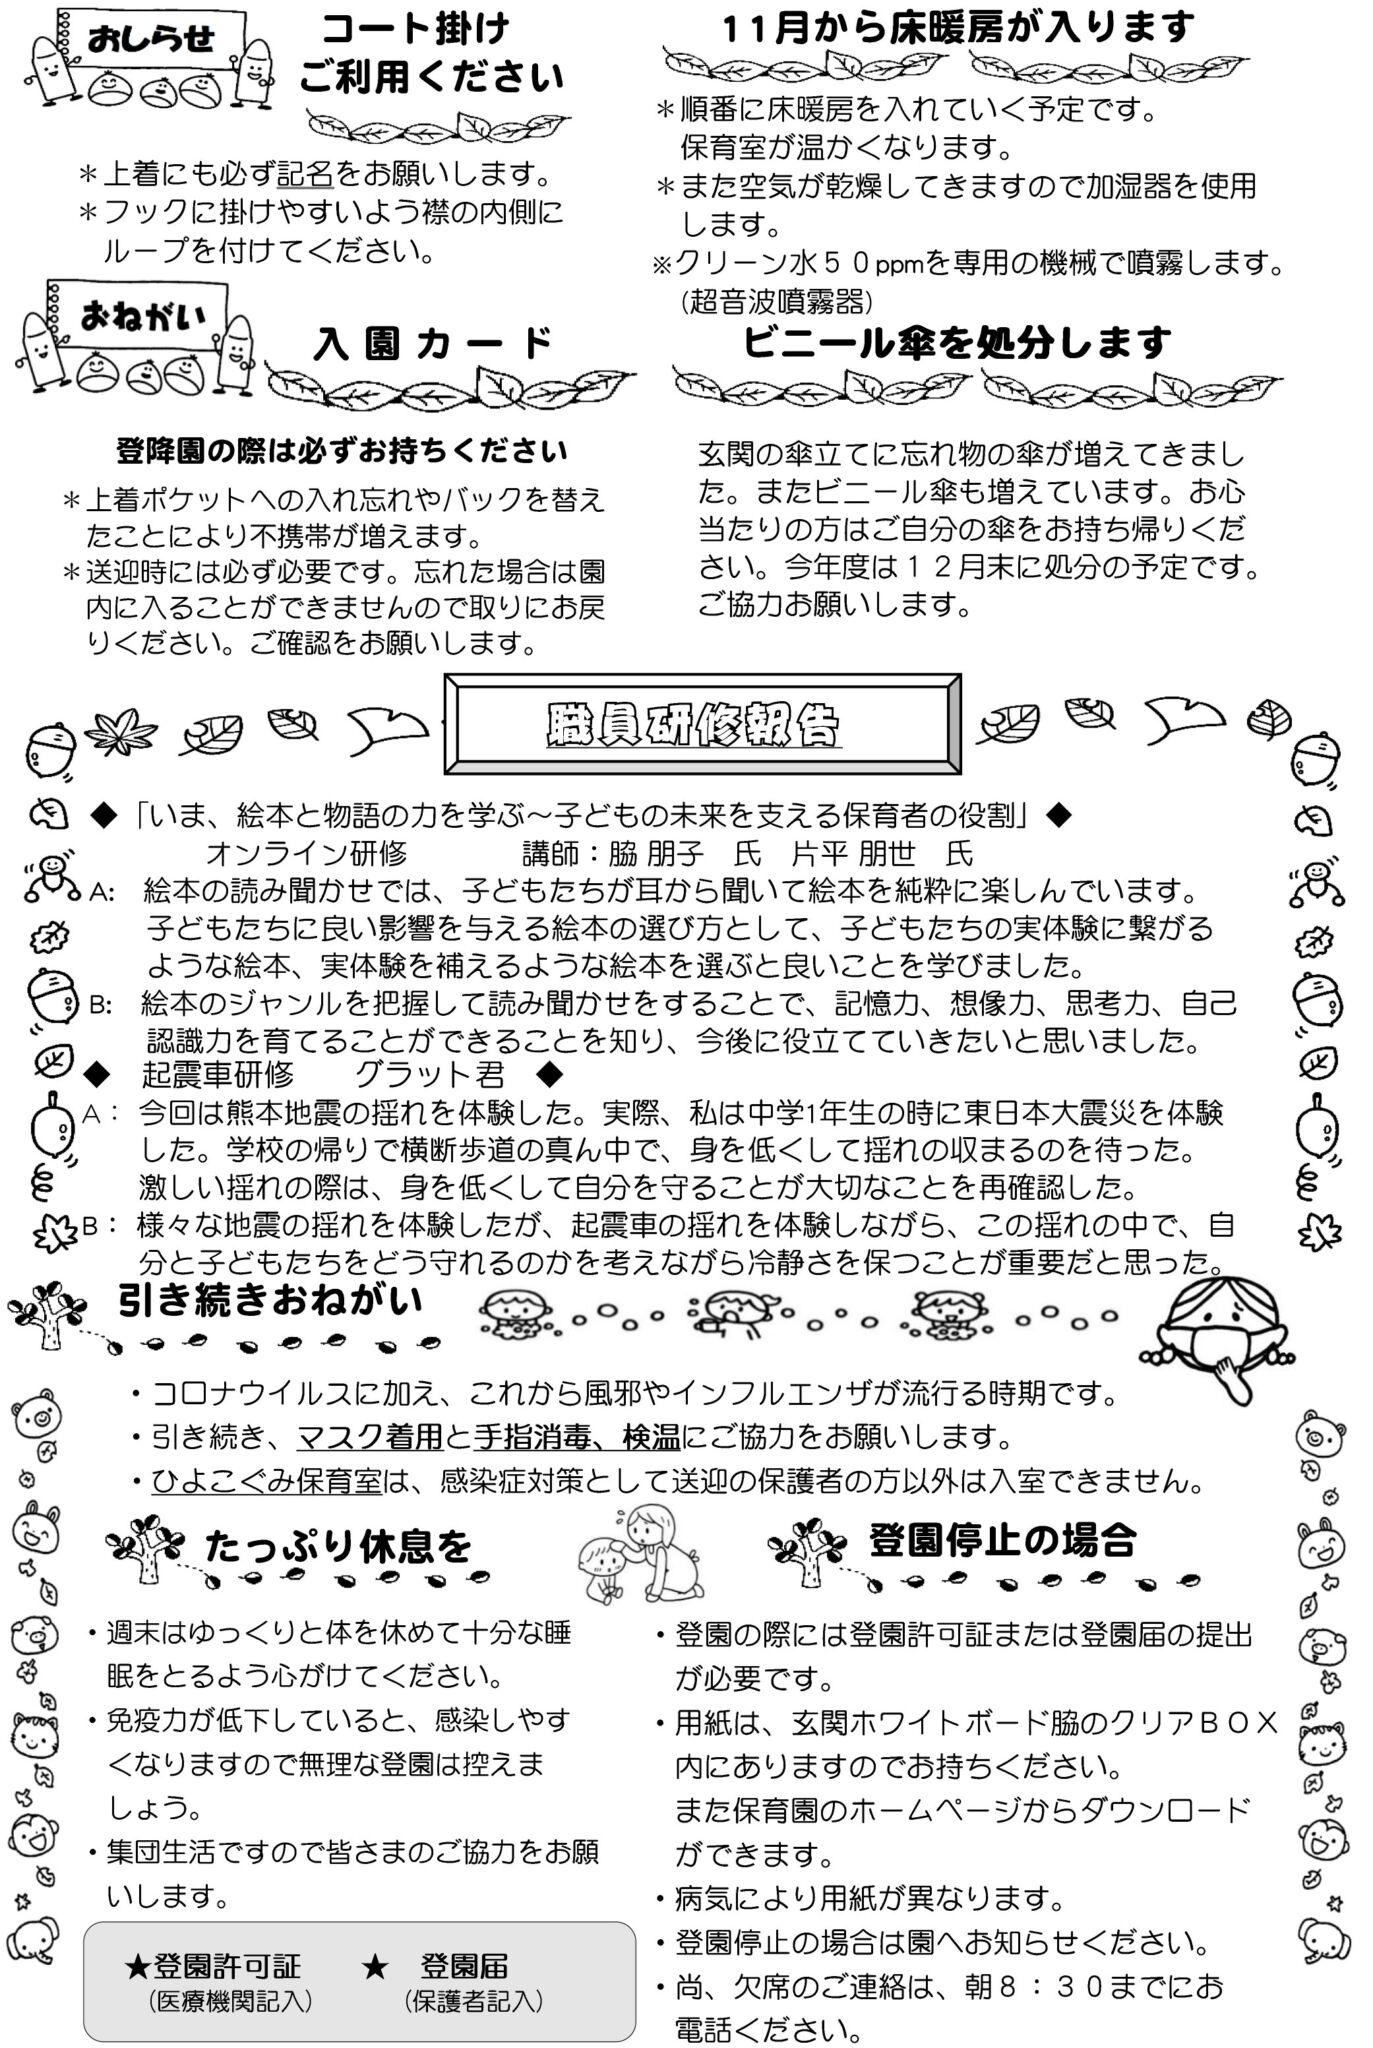 おしらせ
コート掛け
ご利用ください
＊上着にも必ず記名をお願いします。
＊フックに掛けやすいよう襟の内側に
ループを付けてください。
11月から床暖房が入ります
＊順番に床暖房を入れていく予定です。
保育室が温かくなります。
＊また空気が乾燥してきますので加湿器を使用
します。
※クリーン水５０ppmを専用の機械で噴霧します。
(超音波噴霧器)
おねがい
入園カード
登降園の際は必ずお持ちください
＊上着ポケットへの入れ忘れやバックを替え
たことにより不携帯が増えます。
＊送迎時には必ず必要です。忘れた場合は園
内に入ることができませんので取りにお戻
りください。ご確認をお願いします。
ビニール傘を処分します
玄関の傘立てに忘れ物の傘が増えてきまし
た。またビニール傘も増えています。お心
当たりの方はご自分の傘をお持ち帰りくだ
さい。今年度は１２月末に処分の予定です。
ご協力お願いします。
職員研修報告
◆「いま、絵本と物語の力を学ぶ～子どもの未来を支える保育者の役割」◆
オンライン研修　　　　講師：脇 朋子　氏　片平 朋世　氏
A:　絵本の読み聞かせでは、子どもたちが耳から聞いて絵本を純粋に楽しんでいます。
子どもたちに良い影響を与える絵本の選び方として、子どもたちの実体験に繋がる
ような絵本、実体験を補えるような絵本を選ぶと良いことを学びました。
B:　絵本のジャンルを把握して読み聞かせをすることで、記憶力、想像力、思考力、自己
認識力を育てることができることを知り、今後に役立てていきたいと思いました。
◆　起震車研修　　グラット君　◆
A：今回は熊本地震の揺れを体験した。実際、私は中学1年生の時に東日本大震災を体験
した。学校の帰りで横断歩道の真ん中で、身を低くして揺れの収まるのを待った。
激しい揺れの際は、身を低くして自分を守ることが大切なことを再確認した。
B：様々な地震の揺れを体験したが、起震車の揺れを体験しながら、この揺れの中で、自
分と子どもたちをどう守れるのかを考えながら冷静さを保つことが重要だと思った。
引き続きおねがい
・コロナウイルスに加え、これから風邪やインフルエンザが流行る時期です。
・引き続き、マスク着用と手指消毒、検温にご協力をお願いします。
・ひよこぐみ保育室は、感染症対策として送迎の保護者の方以外は入室できません。
たっぷり休息を
・週末はゆっくりと体を休めて十分な睡
眠をとるよう心がけてください。
・免疫力が低下していると、感染しやす
くなりますので無理な登園は控えま
しょう。
・集団生活ですので皆さまのご協力をお願
いします。
★登園許可証　　★　登園届
(医療機関記入)　　(保護者記入)
登園停止の場合
・登園の際には登園許可証または登園届の提出
が必要です。
・用紙は、玄関ホワイトボード脇のクリアＢＯＸ
内にありますのでお持ちください。
また保育園のホームページからダウンロード
ができます。
・病気により用紙が異なります。
・登園停止の場合は園へお知らせください。
・尚、欠席のご連絡は、朝８：３０までにお
電話ください。